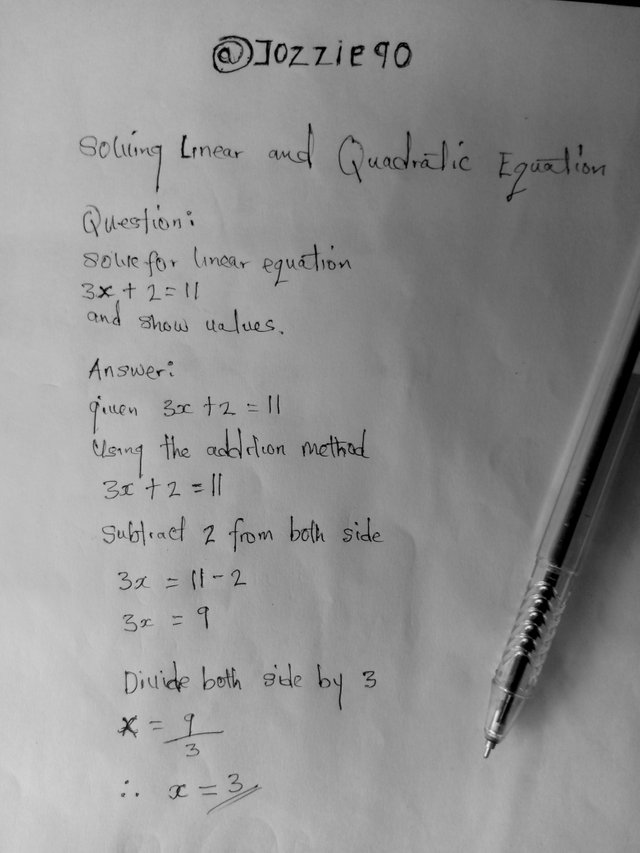 @Jozzie90
Solving Linear and Quadratic Equation
Question:
Solve for linear equation
3x + 2 = 11
and show values.
Answer:
given 3x + 2 = 11
Using the addition method
3x + 2 = 11
Subtract 2 from both side
3x = 11 - 2
3x = 9
Divide both side by 3
x = 9/3
∴ x = 3